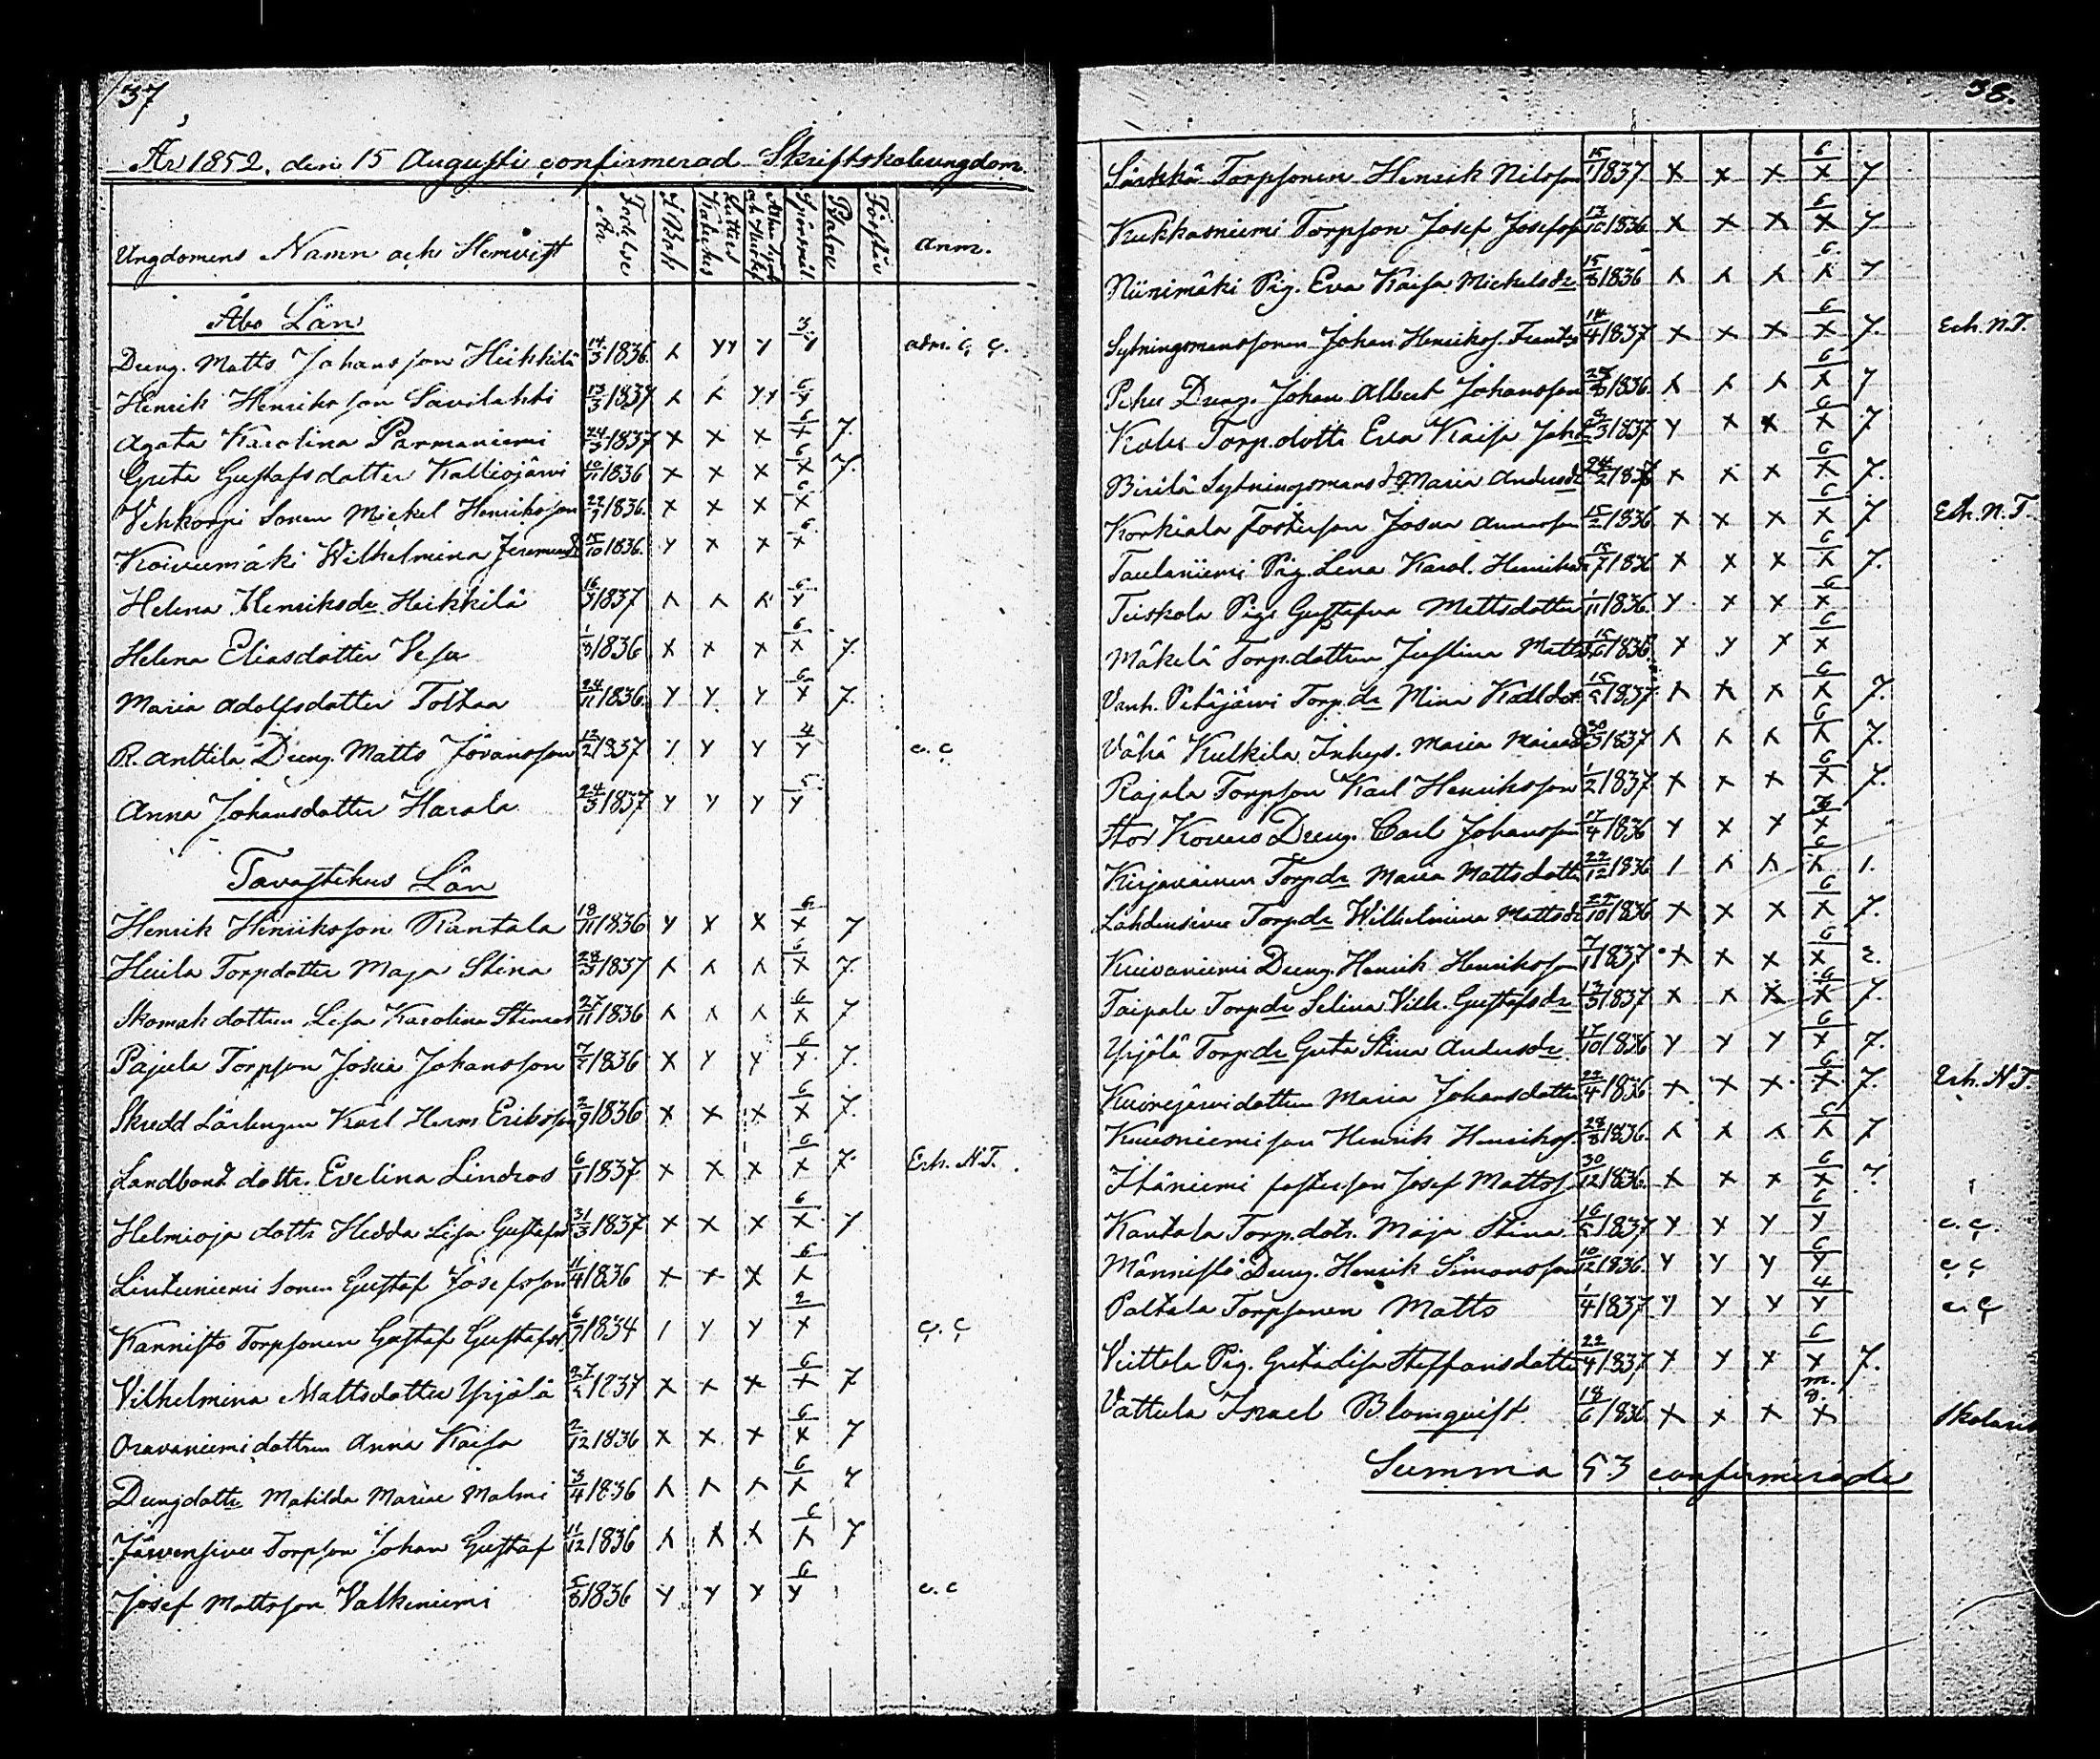 37
År 1852, den 15 Augusti confirmerad Skriftskoleungdom.
Ungdomens Namn och Hemvist Födelse År I Bok Luthers Katekes Spörsmål Psalm Förstår Anm.
Åbo Län
Dreng. Matts Johansson Heikkilä 14/3 1836. x yy y 3/y adm. c. c.
Henrik Henriksson Savilahti 13/3 1837 x x yy 6/y
Agata Karolina Parmaniemi 24/3 1837 x x x 6/x 7.
Greta Gustafsdotter Kalliojärvi 10/11 1836 x x x 6/x 7.
Vehkorpi Sonen Mickel Henriksson 27/7 1836. x x x 6/x
Koivumäki Wilhelmina 15/10 1836. y x x 6/x
Helena Henriksdr Heikkilä 16/3 1837 x x x 6/y
Helena Eliasdotter Vesa 1/3 1836 x x x 6/x 7.
Maria Adolfsdotter Toltaa 24/11 1836. y y y 6/x 7.
R. Anttila Dreng. Matts Jövansson 12/2 1837 y y y 4/y c. c
Anna Johansdotter Harala 24/3 1837 y y y 5/y
Tavastehus Län
Henrik Henriksson Rantala 18/11 1836 y x x 6/x 7
Heila Torpdotter Maja Stina 28/3 1837 x x x 6/x 7.
Skomak dottren Lisa Karolina 27/11 1836 x x x 6/x 7
Pajula Torpson Josua Johansson 7/7 1836 x y y 6/y 7.
Skredd Lärlingen Karl Herm Eriksson 2/9 1836 x x x 6/x 7.
Landbond dottr. Evelina Lindros 6/1 1837 x x x 6/x 7. Erh. N.T.
Helmioja dottr Hedda Lisa Gustafsd 31/3 1837 x x x 6/x 7
Lintuniemi Sonen Gustaf Josefsson 11/4 1836 x x x 6/x
Kannisto Torpsonen Gustaf Gustafss. 6/3 1834 1 y y 2/x c. c
Vilhelmina Mattsdotter Yrjölä 27/2 1837 x x x 6/x 7
Oravaniemi dottren Anna Kaisa 2/12 1836 x x x 6/x 7
Drengdottr Matilda Maria Malmi 3/4 1836 x x x 6/x 7
Järvensivu Torpson Johan Gustaf 11/12 1836 x x x 6/x 7
Josef Mattsson Valkeniemi 5/8 1836 y y y 6/y c. c
38.
Särkkä Torpsonen Henrik Nilsson 15/1 1837 x x x 6/x 7
Kukkasniemi Torpson Josef Josefss 13/10 1836 x x x 6/x 7
Niinimäki Pig. Eva Kaisa Mickelsdr 15/8 1836 x x x 6/x 7
Sytningsmanssonen Johan Henrikss. 14/4 1837 x x x 6/x 7. Erh. N.T.
Pehu Dreng. Johan Albert Johansson 25/8 1836. x x x 6/x 7
Torp.dottr Eva Kaisa Joh. 8/3 1837 y x x 6/x 7
Birilä Sytningsmans d. Maria Andersdr 24/2 1837 x x x 6/x 7.
Korkiala Fosterson Josua 15/2 1836 x x x 6/x 7 Erh. N.T.
Taulaniemi Pig. Lena Karol. Henriksdr 15/7 1836 x x x 6/x 7.
Teiskola Piga Gustafva Mattsdotter 1/11 1836. y x x 6/x
Mäkelä Torp.dottren Justina Matts 15/6 1836. x y x 6/x
Vanh. Pitäjärvi Torp.dr Mina 15/5 1837. x x x 6/x 7.
Vähä Kulkila Inhys. Maria 30/3 1837 x x x 6/x 7.
Rajala Torpson Karl Henriksson 1/2 1837 x x x 6/x 7.
Stor Kouvo Dreng. Carl Johansson 17/4 1836 y x y 3/x
Kirjavainen Torpdr Maria Mattsdottr 22/12 1836 1 x x 6/x 1.
Lahdensivu Torpdr Wilhelmina Mattsdr 27/10 1836 x x x 6/x 7.
Kuivaniemi Dreng Henrik Henriksson 7/1 1837 x x x 6/x 2.
Taipale Torpdr Selina Vilh. Gustafsdr 13/3 1837 x x x 6/x 7.
Yrjölä Torpdr Greta Stina Andersdr 17/10 1836 y y y 6/x 7.
Kuorejärvi dottren Maria Johansdotter 22/4 1836. x x x. 6/x. 7. Erh. N.T.
Kuusniemi son Henrik Henrikss. 28/8 1836. x x x 6/x 7
Itäniemi fosterson Josef Mattss. 30/12 1836. x x x 6/x 7
Kantola Torp.dotr. Maja Stina 16/5 1837 y x y 6/y c. c.
Männistö Dreng. Henrik Simonsson 10/12 1836. y y y 6/y c. c
Paltala Torpsonen Matts 1/4 1837 y y y 4/y c. c
Viittala Pig. Gretalisa Steffansdotter 22/4 1837 x y x 6/x 7.
Vattula Israel Blomqvist 18/6 1836 x x x m. 8./x
Summa 53 confirmerade